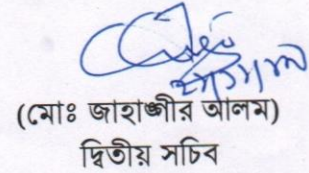 (মোঃ জাহাঙ্গীর আলম)
দ্বিতীয় সচিব